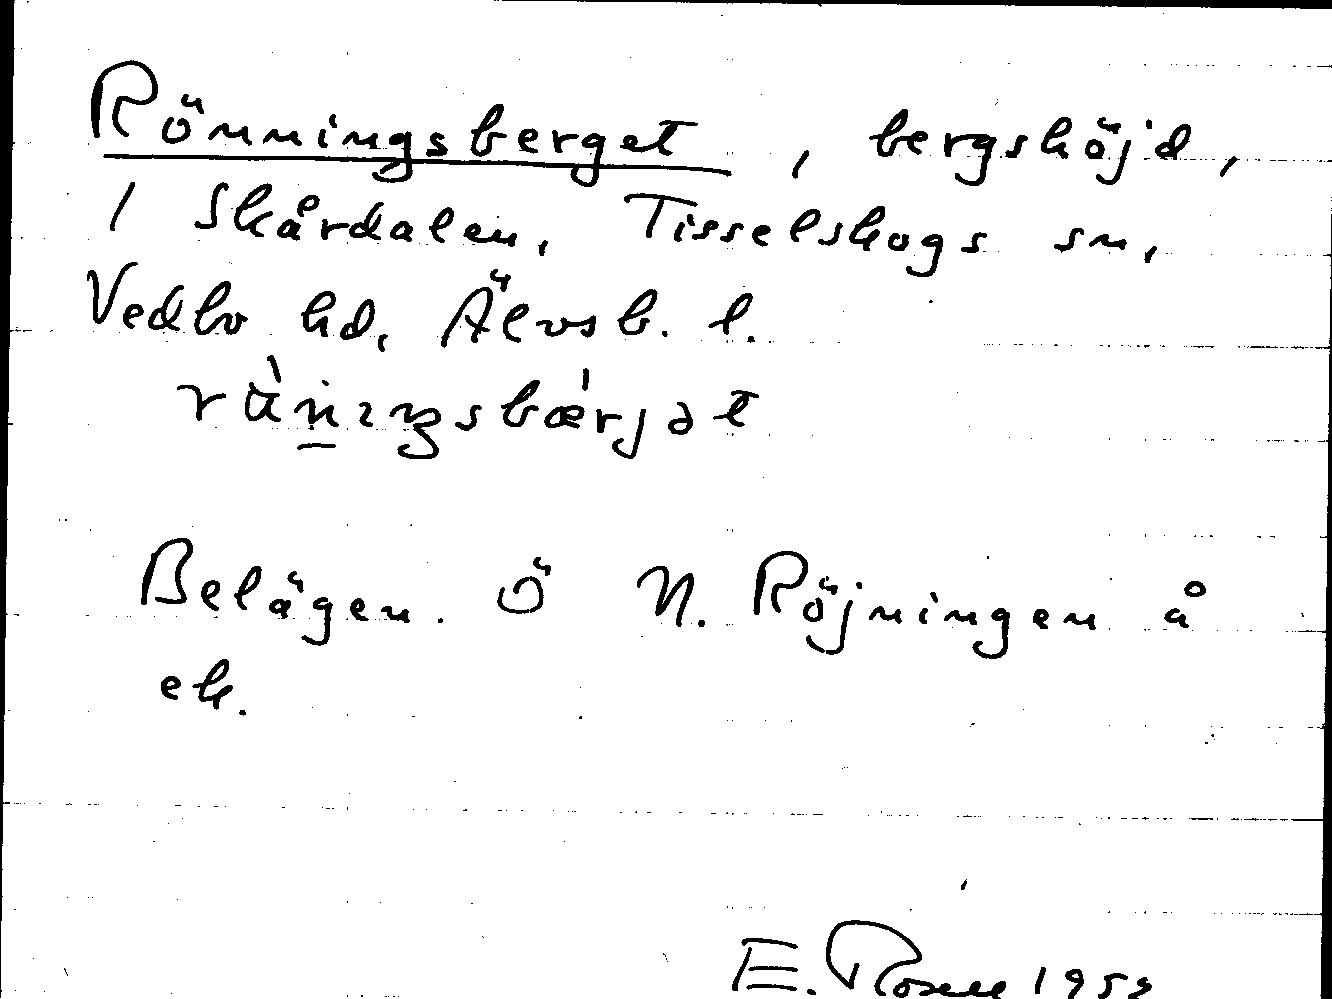 Rönningsberget, bergshöjd,
1 Skårdalen, Tisselskogs sn,
Vedbo hd, Älvsb. l.
Belägen. Ö N. Röjningen å
ek.
E. Rosell 1959